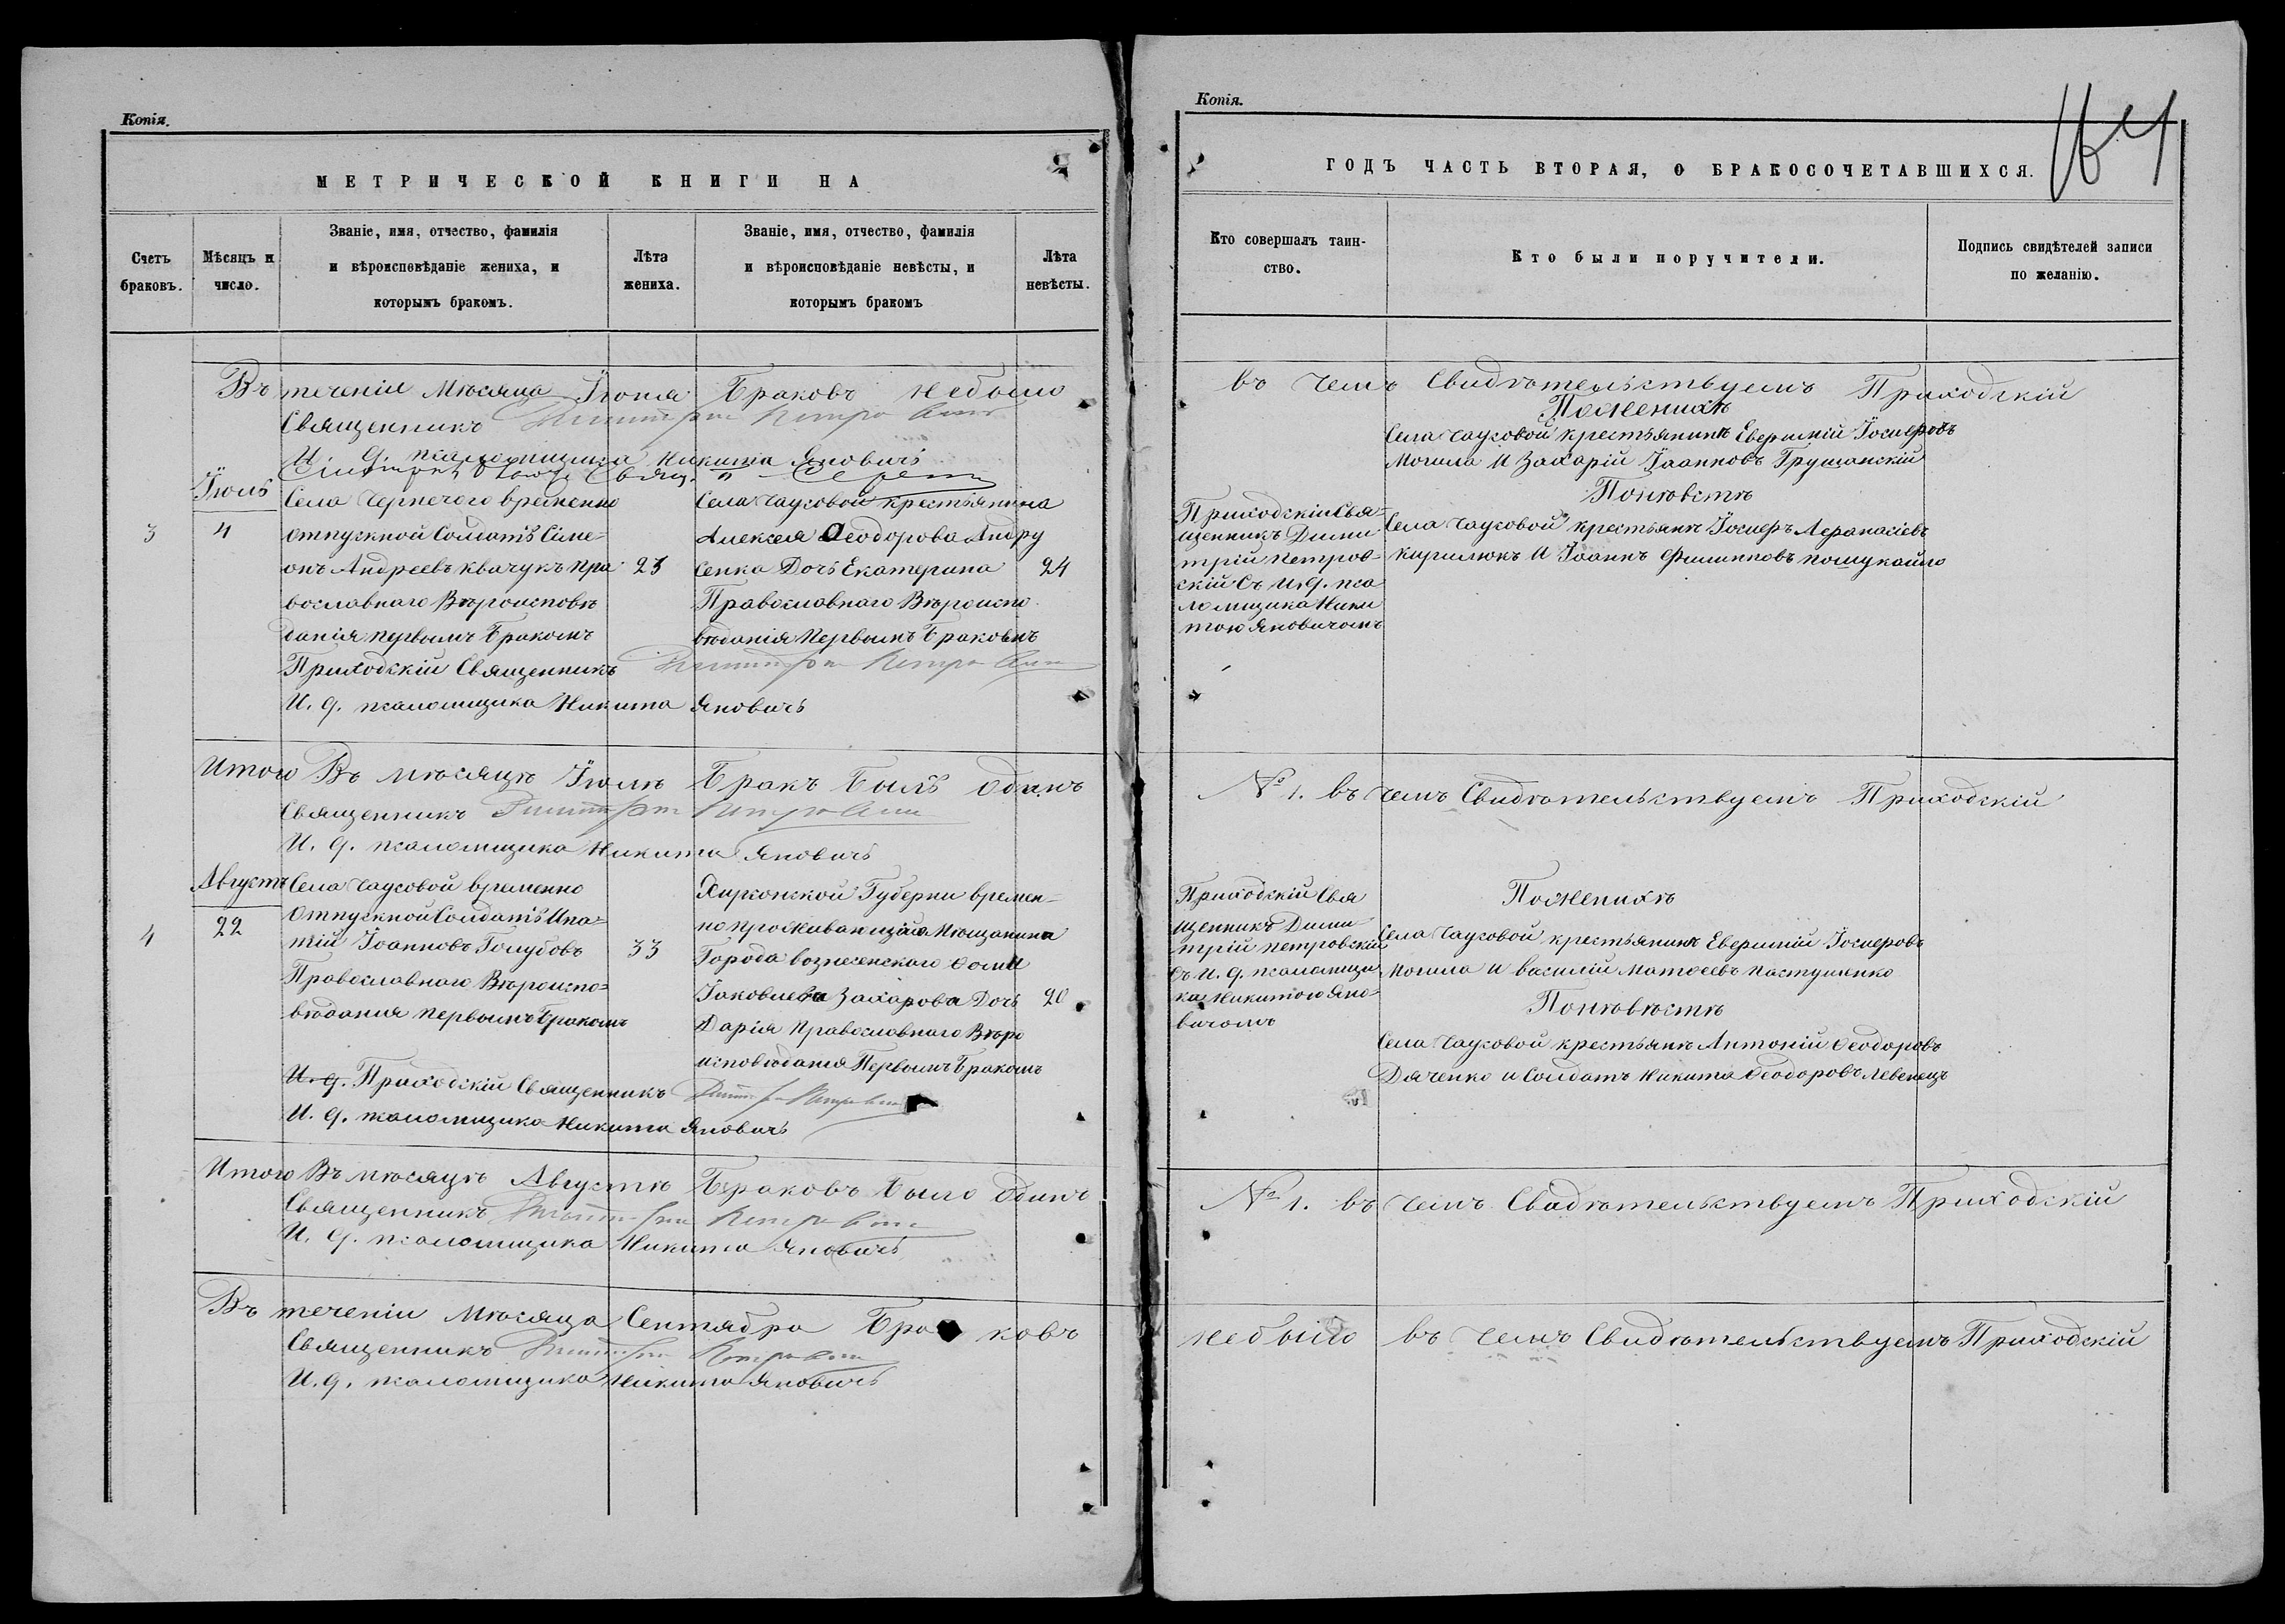 Копія.
МЕТРИЧЕСКОЙ КНИГИ НА
Счетъ браковъ.
Мѣсяцъ и число.
Званіе, имя, отчество, фамилія
и вѣроисповѣданіе жениха, и
которымъ бракомъ.
Лѣта
жениха.
Званіе, имя, отчество, фамилія
и вѣроисповѣданіе невѣсты, и
которымъ бракомъ
Лѣта
невѣсты.
Въ теченіи Мѣсяца Іюня Браковъ небыло
Священникъ
И. д. псаломщика Никита Яновичъ
Іюль
4
3
Села Чернечого временно
отпускной Солдатъ Симе-
онъ Андреевъ Квачукъ Пра
вославнаго Вѣроисповѣ
данія первымъ Бракомъ
23
Села Чаусовой крестьянина
Алексея Ѳеодорова Андру
сенка Дочь Екатерина
Православнаго Вѣроиспо
вѣданія Первымъ Бракомъ
24
Приходскій Священникъ
И. д. псаломщика Никита Яновичъ
Итого Въ мѣсяцѣ Іюлѣ Бракъ Былъ одинъ
Священникъ
И. д. псаломщика Никита Яновичъ
Августъ
22
4
Села Чаусовой временно
отпускной Солдатъ Ипа-
тій Іоанновъ Голубовъ
Православнаго Вѣроиспо-
вѣдания первымъ Бракомъ
33
Херсонской Губерни времен-
но проживающаго Мещанина
Города Вознесенскаго Фомы
Іаковлева Захарова Дочь
Дарія Православнаго Вѣро
исповѣдания Первымъ Бракомъ
20
И. д. Приходскій Священникъ
И. д. псаломщика Никита Яновичъ
Итого Въ мѣсяцѣ Августѣ Браковъ было Одинъ
Священникъ
И. д. псаломщика Никита Яновичъ
Въ теченіи Мѣсяца Сентября Браковъ
Священникъ
И. д. псаломщика Никита Яновичъ
Копія.
ГОДЪ ЧАСТЬ ВТОРАЯ, О БРАКОСОЧЕТАВШИХСЯ.
Кто совершалъ таин-
ство.
Кто были поручители.
Подпись свидѣтелей записи
по желанію.
въ чемъ Свидѣтельствуемъ Приходскій
Поженихѣ
Села Чаусовой крестьянинъ Евфимій Іосифовъ
Могила И Захарій Іоанновъ Грушанскій
Поневѣстѣ
Села Чаусовой крестьянъ Іосифъ Афанасіевъ
Кирилюкъ И Іоаннъ Филипповъ Пошукайло
Приходскій Свя-
щенникъ Дими
трій Петров-
скій Съ И. д. пса
ломщика Ники
тою Яновичомъ
№ 1. въ чемъ Свидѣтельствуемъ Приходскій
Приходскій Свя
щенникъ Дими
трій Петровскій
съ И. д. псаломщи
ка Никитою Яно-
вичомъ
Поженихѣ
Села Чаусовой крестьянинъ Евфимій Іосифовъ
Могила и Василій Матѳеевъ Пастушенко
Поневѣстѣ
Села Чаусовой крестьянъ Антоній Ѳеодоровъ
Дяченко и Солдатъ Никита Ѳеодоровъ Левенецъ
№ 1. въ чемъ Свидѣтельствуемъ Приходскій
небыло въ чемъ Свидѣтельствуемъ Приходскій